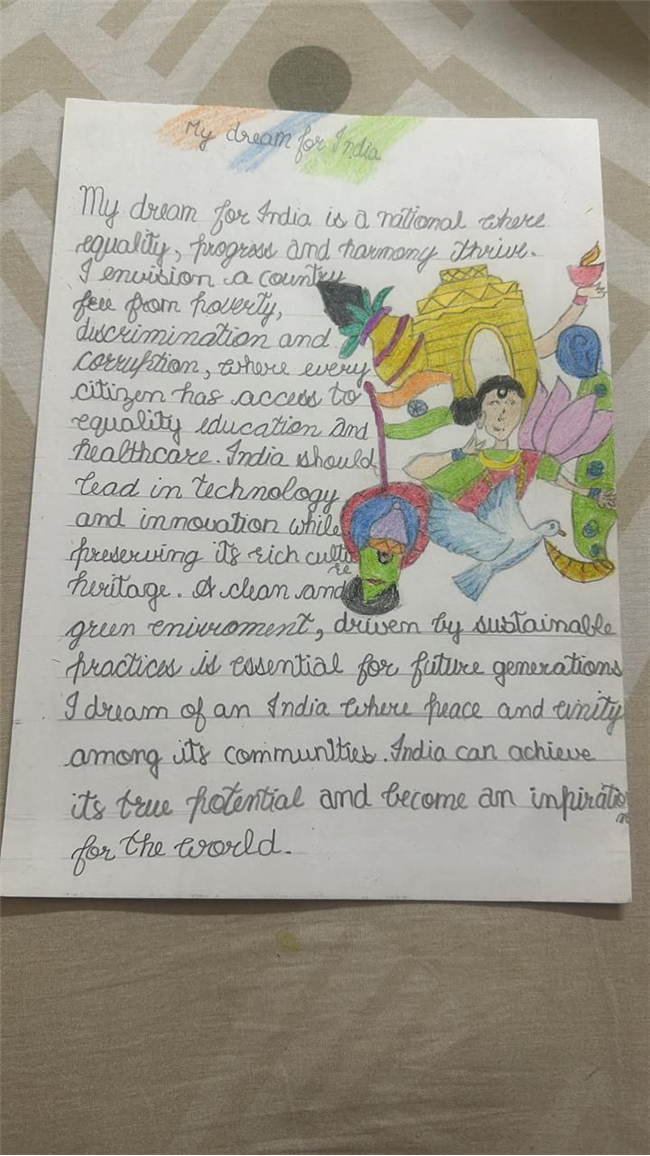 My dream for India
My dream for India is a national where
equality, progress and harmony thrive.
I envision a country
fee from poverty,
discrimination and
corruption, where every
citizen has access to
equality education and
healthcare. India should
lead in technology
and innovation while
preserving its rich cultu
re
heritage. A clean and
green enivroment, driven by sustainable
practices is essential for future generations
I dream of an India where peace and unity
among its communities. India can achieve
its true potential and become an inpiratio
n
for the world.